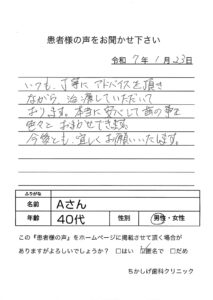 患者様の声をお聞かせ下さい
令和 7年 1月23日
いつも、丁寧にアドバイスを頂き
ながら、治療していただいて
おります。本当に安心して歯の事を
色々とおまかせできます。
今後とも、宜しくお願いいたします。
ふりがな
名前 Aさん
年齢 40代 性別 男性・女性
この『患者様の声』をホームページに掲載させて頂く場合が
ありますがよろしいでしょうか？ □はい ☑匿名で □だめ
ちかしげ歯科クリニック